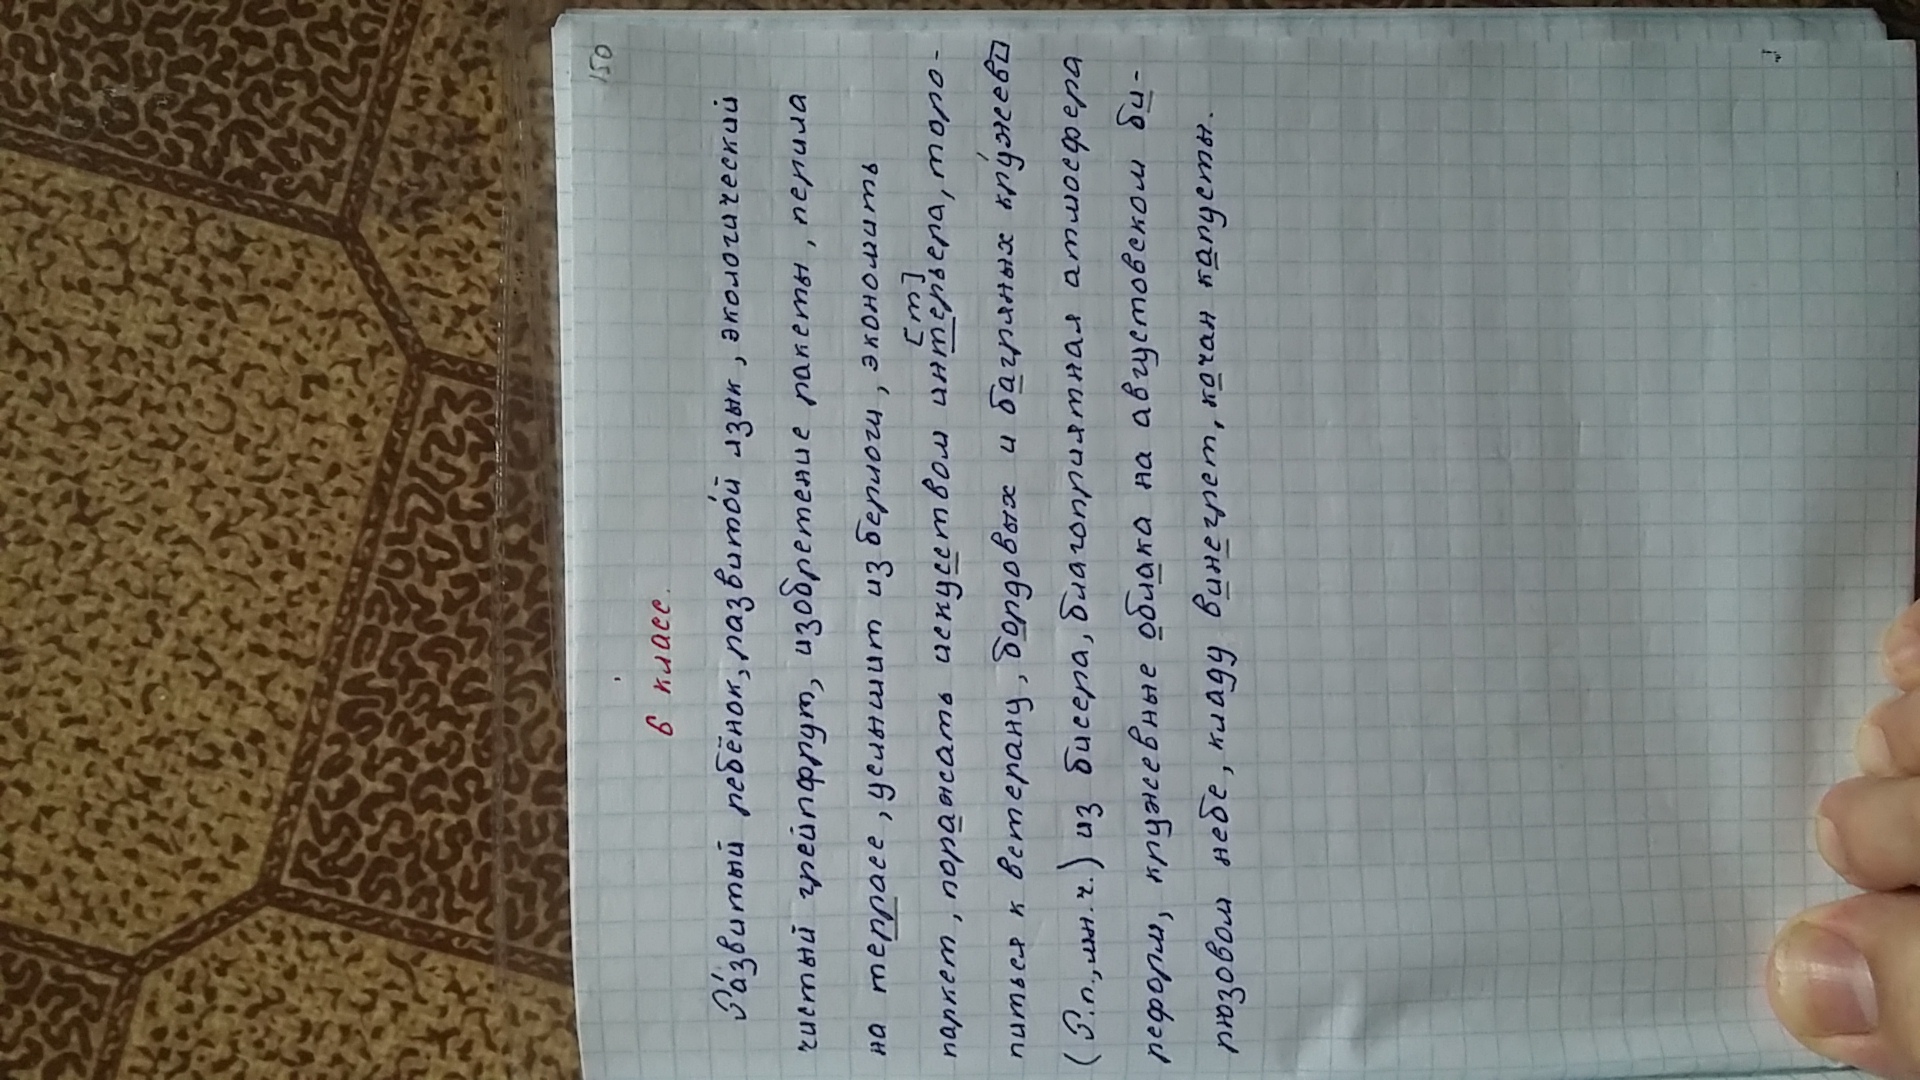 150
6 класс.
Ра́звитый ребёнок, развито́й язык, экологический
чистый грейпфрут, изобретение ракеты, перила
на террасе, услышит из берлоги, экономить
[т]
паркет, поражать искуством интерьера, торо-
питься к ветерану, бордовых и багряных кру́жев
(Р.п., мн.ч.) из бисера, благоприятная атмосфера
реформ, кружевные облака на августовском би-
рюзовом небе, кладу винегрет, качан капусты.